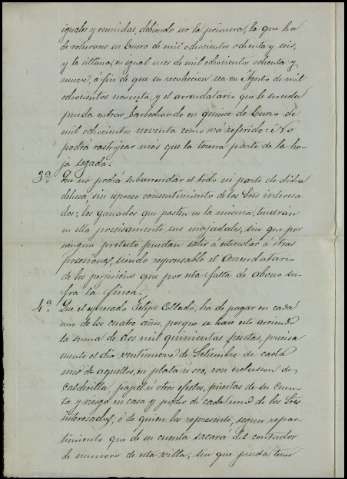 iguales y reunidas, debiendo ser la primera, la que ha
de costearse en Enero de mil ochocientos ochenta y seis,
y la última, en igual mes de mil ochocientos ochenta y
nueve, á fin de que su recoleccion sea en Agosto de mil
ochocientos noventa, y el arrendatario que le suceda
pueda entrar barbechando en quince de Enero de
mil ochocientos noventa como va referido: No
podrá rastrojear mas que la tercera parte de la ho-
ja segada.
3ª Que no podrá subarrendar el todo ni parte de dicha
dehesa, sin espreso consentimiento de los Sres interesa-
dos; los ganados que pasten en la misma, tendran
en ella precisamente sus majadales, sin que por
ningun pretesto puedan salir á estercolar á otras
posesiones, siendo responsable el Arrendatario
de los perjuicios que por esta falta de abono su-
fra la finca.
4ª Que el espresado Felipe Collado, ha de pagar en cada
uno de los cuatro años, porque se hace este arriendo
la suma de dos mil quinientas pesetas, precisa-
mente el dia veintinueve de Setiembre de cada
uno de aquellos, en plata ú oro, con esclusion de
calderilla papel ú otros efectos, puestas de su cuenta
y riesgo en casa y poder de cada uno de los Sres
interesados, ó de quien les represente, segun repar-
timiento que de su cuenta sacará del contador
de número de esta villa, sin que pueda tener